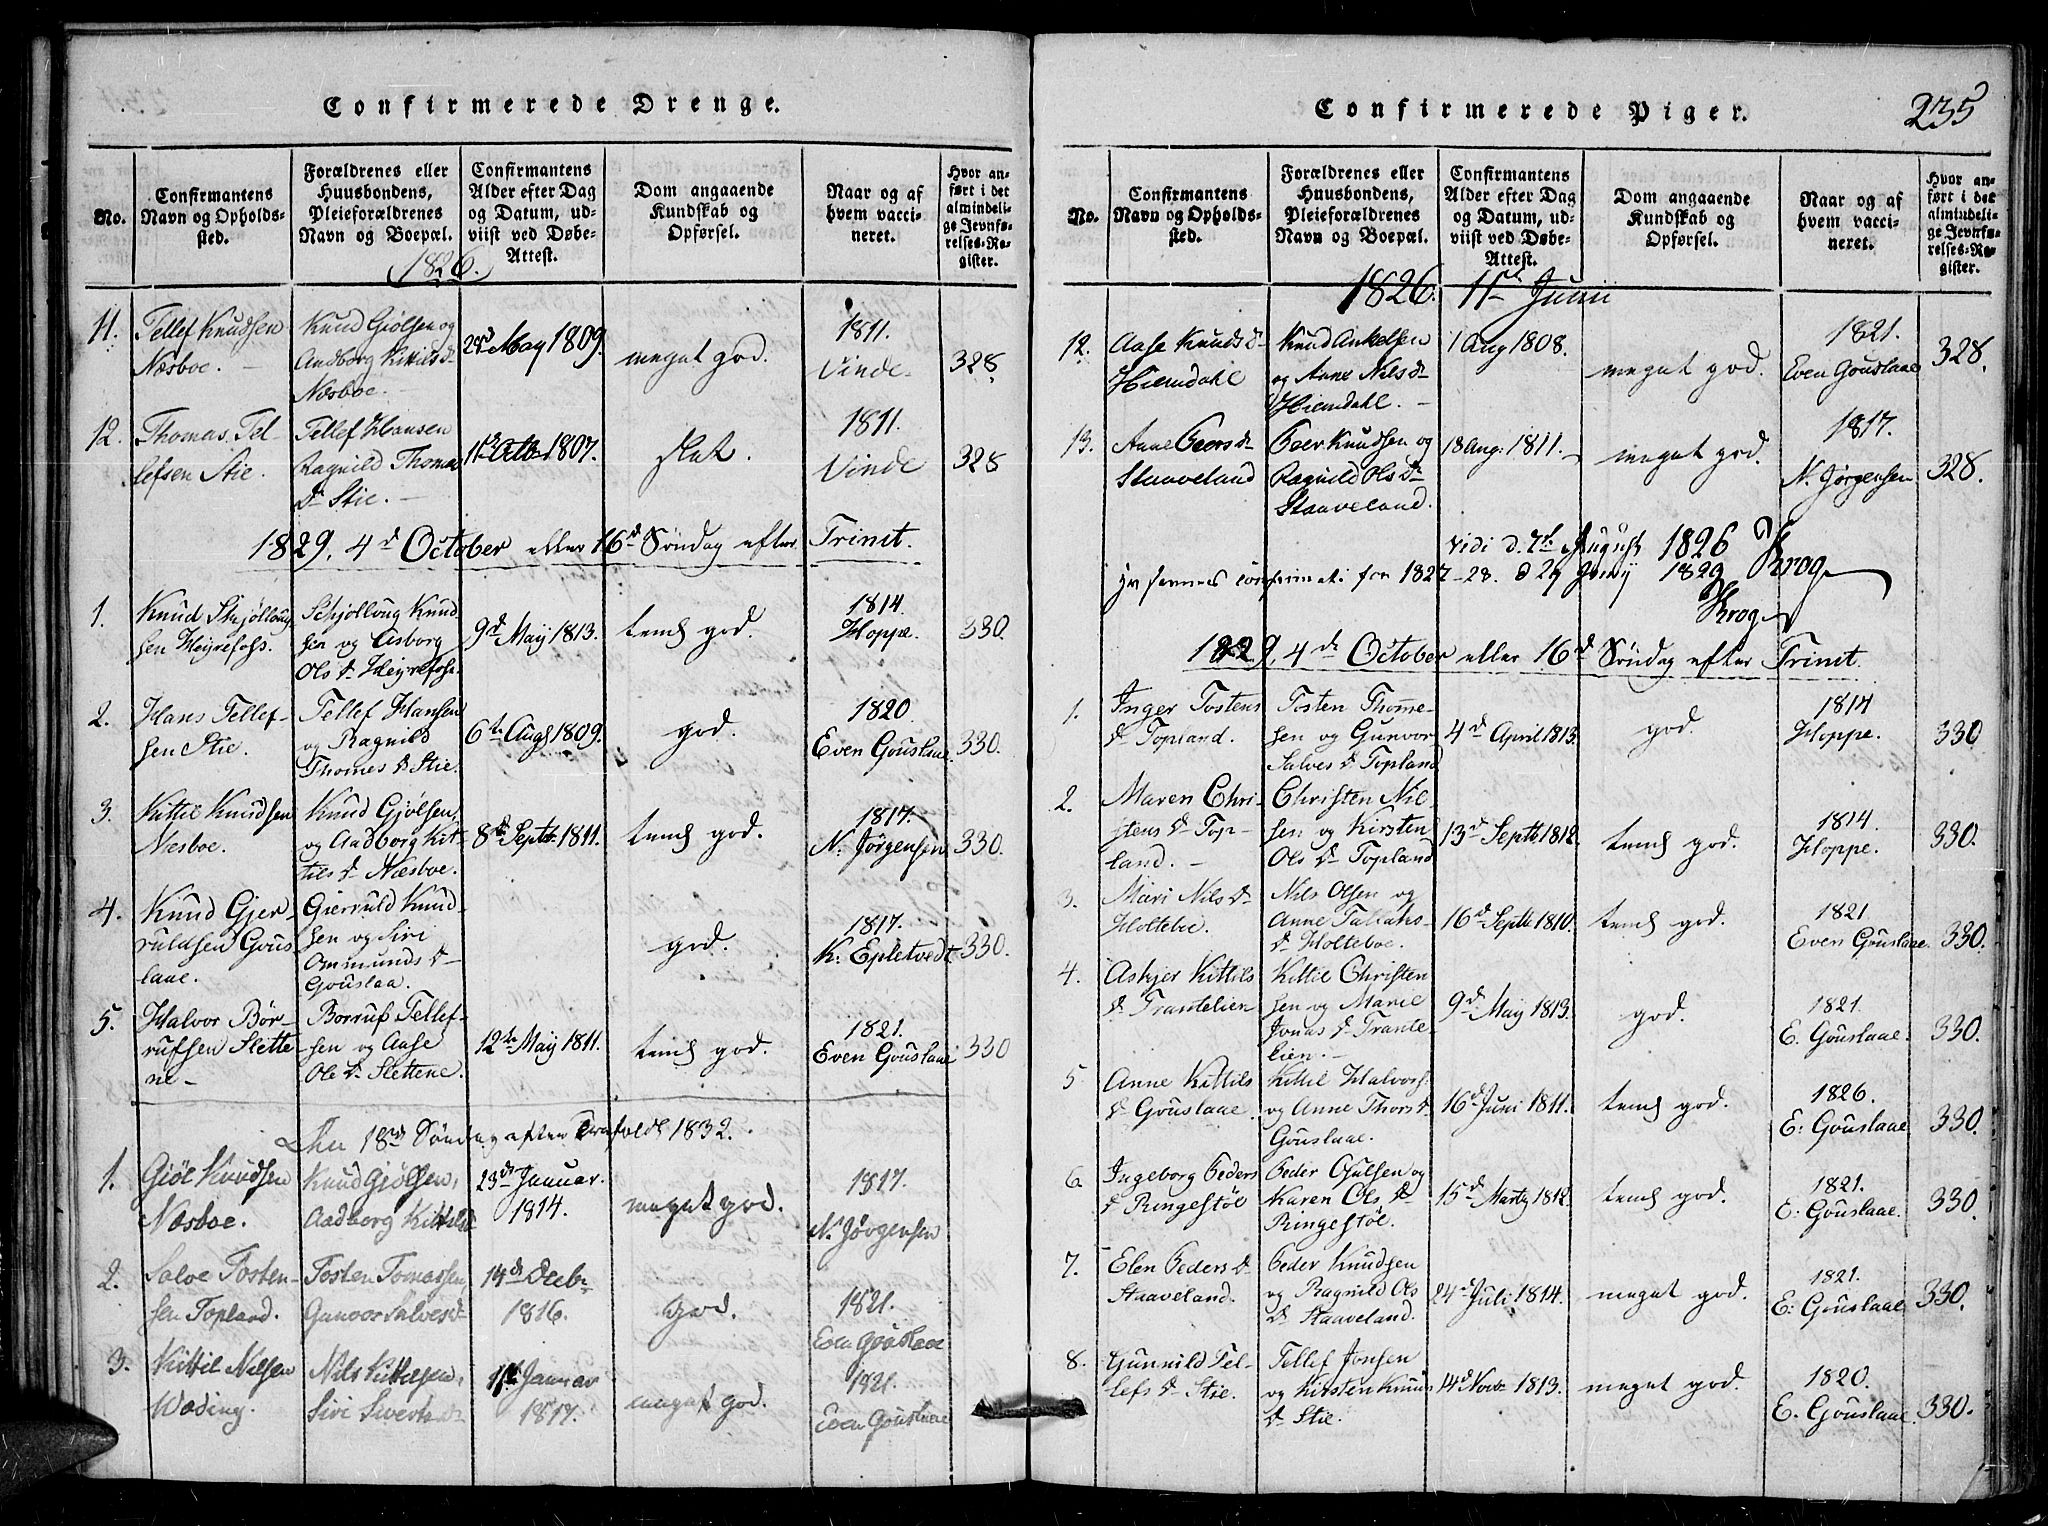 Confirmerede Drenge.
No.
Confirmantens Navn og Opholdssted.
Forældrenes eller Huusbondens, Pleieforældrenes Navn og Boepæl.
Confirmantens Alder efter Dag og Datum, udviist ved Døbe-Attest.
Dom angaaende Kundskab og Opførsel.
Naar og af hvem vaccineret.
Hvor anført i det almindelige Jevnførelses-Register.
1826.
11. Tellef Knudsen Næsboe. Knud Giølsen og Aadborg Kittils D Næsboe. May 1809. meget god. 1811. Vinde 328.
12. Thomas Tellefsen Stie. Tellef Hansen Ragnild Thomæ D Stie. 1807. slet. 1811. Vinde 328
1829. 4d October eller 16d Søndag efter Trinit.
1. Knud Skjølloug sen Heyrefoss. Schjølloug Knudsen og Aasborg Ols D Heyrefoss. 9d Maij 1813. tem god. 1814. Hoppe. 330.
2. Hans Tellefsen Stie. Tellef Hansen og Ragnild Thomes D Stie. 6te Augs 1809. god. 1820. Even Gouslaae. 330.
3. Kittil Knudsen Næsboe. Knud Gjølsen, og Aadborg Kittils D Næsboe. 8d Septb. 1811. tem god. 1817. N. Jørgensen 330.
4. Knud Gjeruldsen Gouslaae. Gierruld Knudsen og Siri Ommunds D Gouslaa. god. 1817. K. Epletvedt. 330.
5. Halvor Børrufsen Slettene Borruf Tellefsen og Aase Ole D Slettene. 12te Maij 1811. tem god. 1821. Even Gouslaae 330
18de Søndag efter 1832.
1. Giøl Knudsen Næsboe. Knud Gjølsen, Aadborg Kittilsd 23de Januar. 1814. meget god. 1817. N. Jørgensen
2. Salve Tostensen Topland. Tosten Tomassen, Gunvor Salvesd 14d Decbr 1816. god. 1821. Even Gouslaae
3. Kittil Nilsen Wæding. Nils Kittelsen, Siri Januar 1817. meget god. 1821. Even Gouslaae
Confirmerede Piger.
235
No.
Confirmantens Navn og Opholdssted.
Forældrenes eller Huusbondens, Pleieforældrenes Navn og Boepæl.
Confirmantens Alder efter Dag og Datum, udviist ved Døbe-Attest.
Dom angaaende Kundskab og Opførsel.
Naar og af hvem vaccineret.
Hvor anført i det almindelige Jevnførelses-Register.
1826. 11d Junii
12. Aase Knuds D Hiemdahl Knud Ankelsen og Anne Nils D Hiemdahl. 1 Aug 1808. meget god. 1821. Even Gouslaae 328.
13. Anne Peers D Staaveland Peer Knudsen og Ragnild Ols D Staaveland. 18 Aug: 1811. meget god. 1817. N. Jørgensen 328.
Vidi d. 7d August 1826 Krog
1827-28. d 29 1829 Krog
1829. 4de October eller 16d Søndag efter Trinit.
1. Inger Tostens D Topland. Tosten Thomesen og Gunvor Salves D Topland 4d April 1813. god. 1814 Hoppe. 330
2. Maren Christens D Topland. Christen Nilsen og Kirsten Ols D Topland 13d Septb 1812. tem god. 1814. Hoppe. 330.
3. Mari Nils D Holteboe. Nils Olsen og Anne Tallahs D Holteboe. 16d Septb 1810. tem god. 1821. Even Gouslaae. 330.
4. Asbjer Kittils D Trantelien Kittil Christensen og Marie Jonas D Trantelien. 9d May 1813. god. 1821. E. Gouslaae. 330.
5 Anne Kittils D Gouslaae. Kittil Halvors. og Anne Thors D Gouslaae. 16d Juni 1811. tem god. 1826. E: Gouslaae 330.
6. Ingeborg Peders D Ringestøl Peder Osulsen og Karen Ols D Ringestøl. 15d Marts 1812. tem god. 1821. E: Gouslaae. 330.
7. Elen Peders D Staaveland. Peder Knudsen og Ragnild Ols D Staaveland. 24d Juli 1814. meget god. 1821. E: Gouslaae 330.
8. Gunnild Tellefs D Stie. Tellef Jonsen og Kirsten Knuds D Stie. 14d Novbr 1813. meget god. 1820. E. Gouslaae. 330.